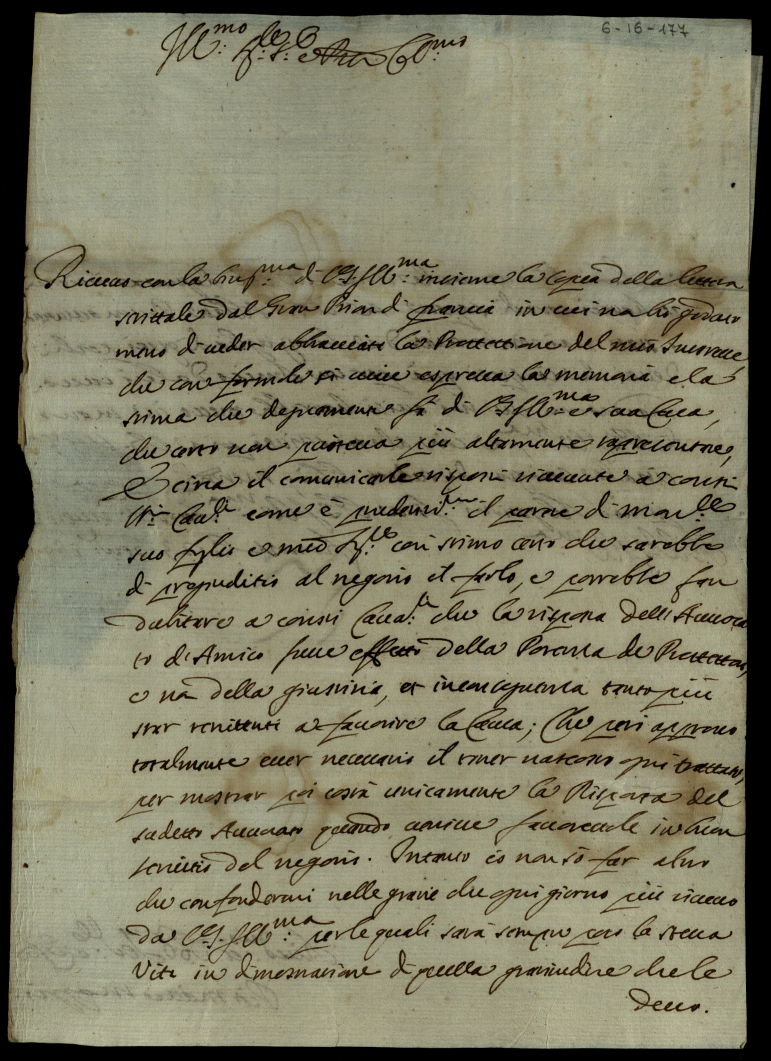 6-16-177
Ill.mo Sig.re e Pron Col.mo
Riceuo con la huma.ma di V.S. Ill.ma insieme la copia della lettera
scrittale dal Gran Prior di francia in cui non ho goduto
meno di ueder abbracciata la Protettione del mio
che con formole si uiue espressa la memoria e la
stima che degnamente fa di V.S. Ill.ma e sua Casa,
che certo non poteua più altamente rapresentare,
E circa il comunicarle risposi riceuute a cotesti
SS.ri Caua.ri come è prudentiss.mo il parere di mon.
suo figlio e mio Sig.re cosi stimo certo che sarebbe
di pregiuditio al negotio il farlo, e potrebbe far
dubitare a cotesti Caua.ri che la risposta dell'Auuoca
to di Amico fusse effetto della Potenza de Protettori,
e non della giustitia, et in conseguenza tanto più
star renitenti a fauorire la Causa; Che però approuo
totalmente esser necessario il tener nascosto ogni trattato,
per mostrar poi costà unicamente la Risposta del
sudetto Auuocato quando uenisse fauoreuole in buon
seruitio del negotio. Intanto io non sò far altro
che confondermi nelle gratie che ogni giorno più riceuo
da V.S. Ill.ma per le quali sarà sempre poco la stessa
Vita in dimostratione di quella gratitudine che le
deuo.